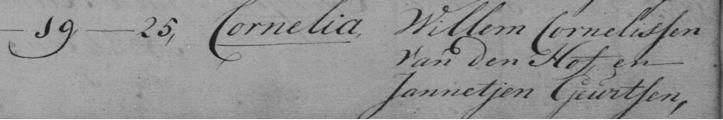 — 19 — 25, Cornelia, Willem Cornelissen
Van den Hof, en
Jannetjen Geurtsen,